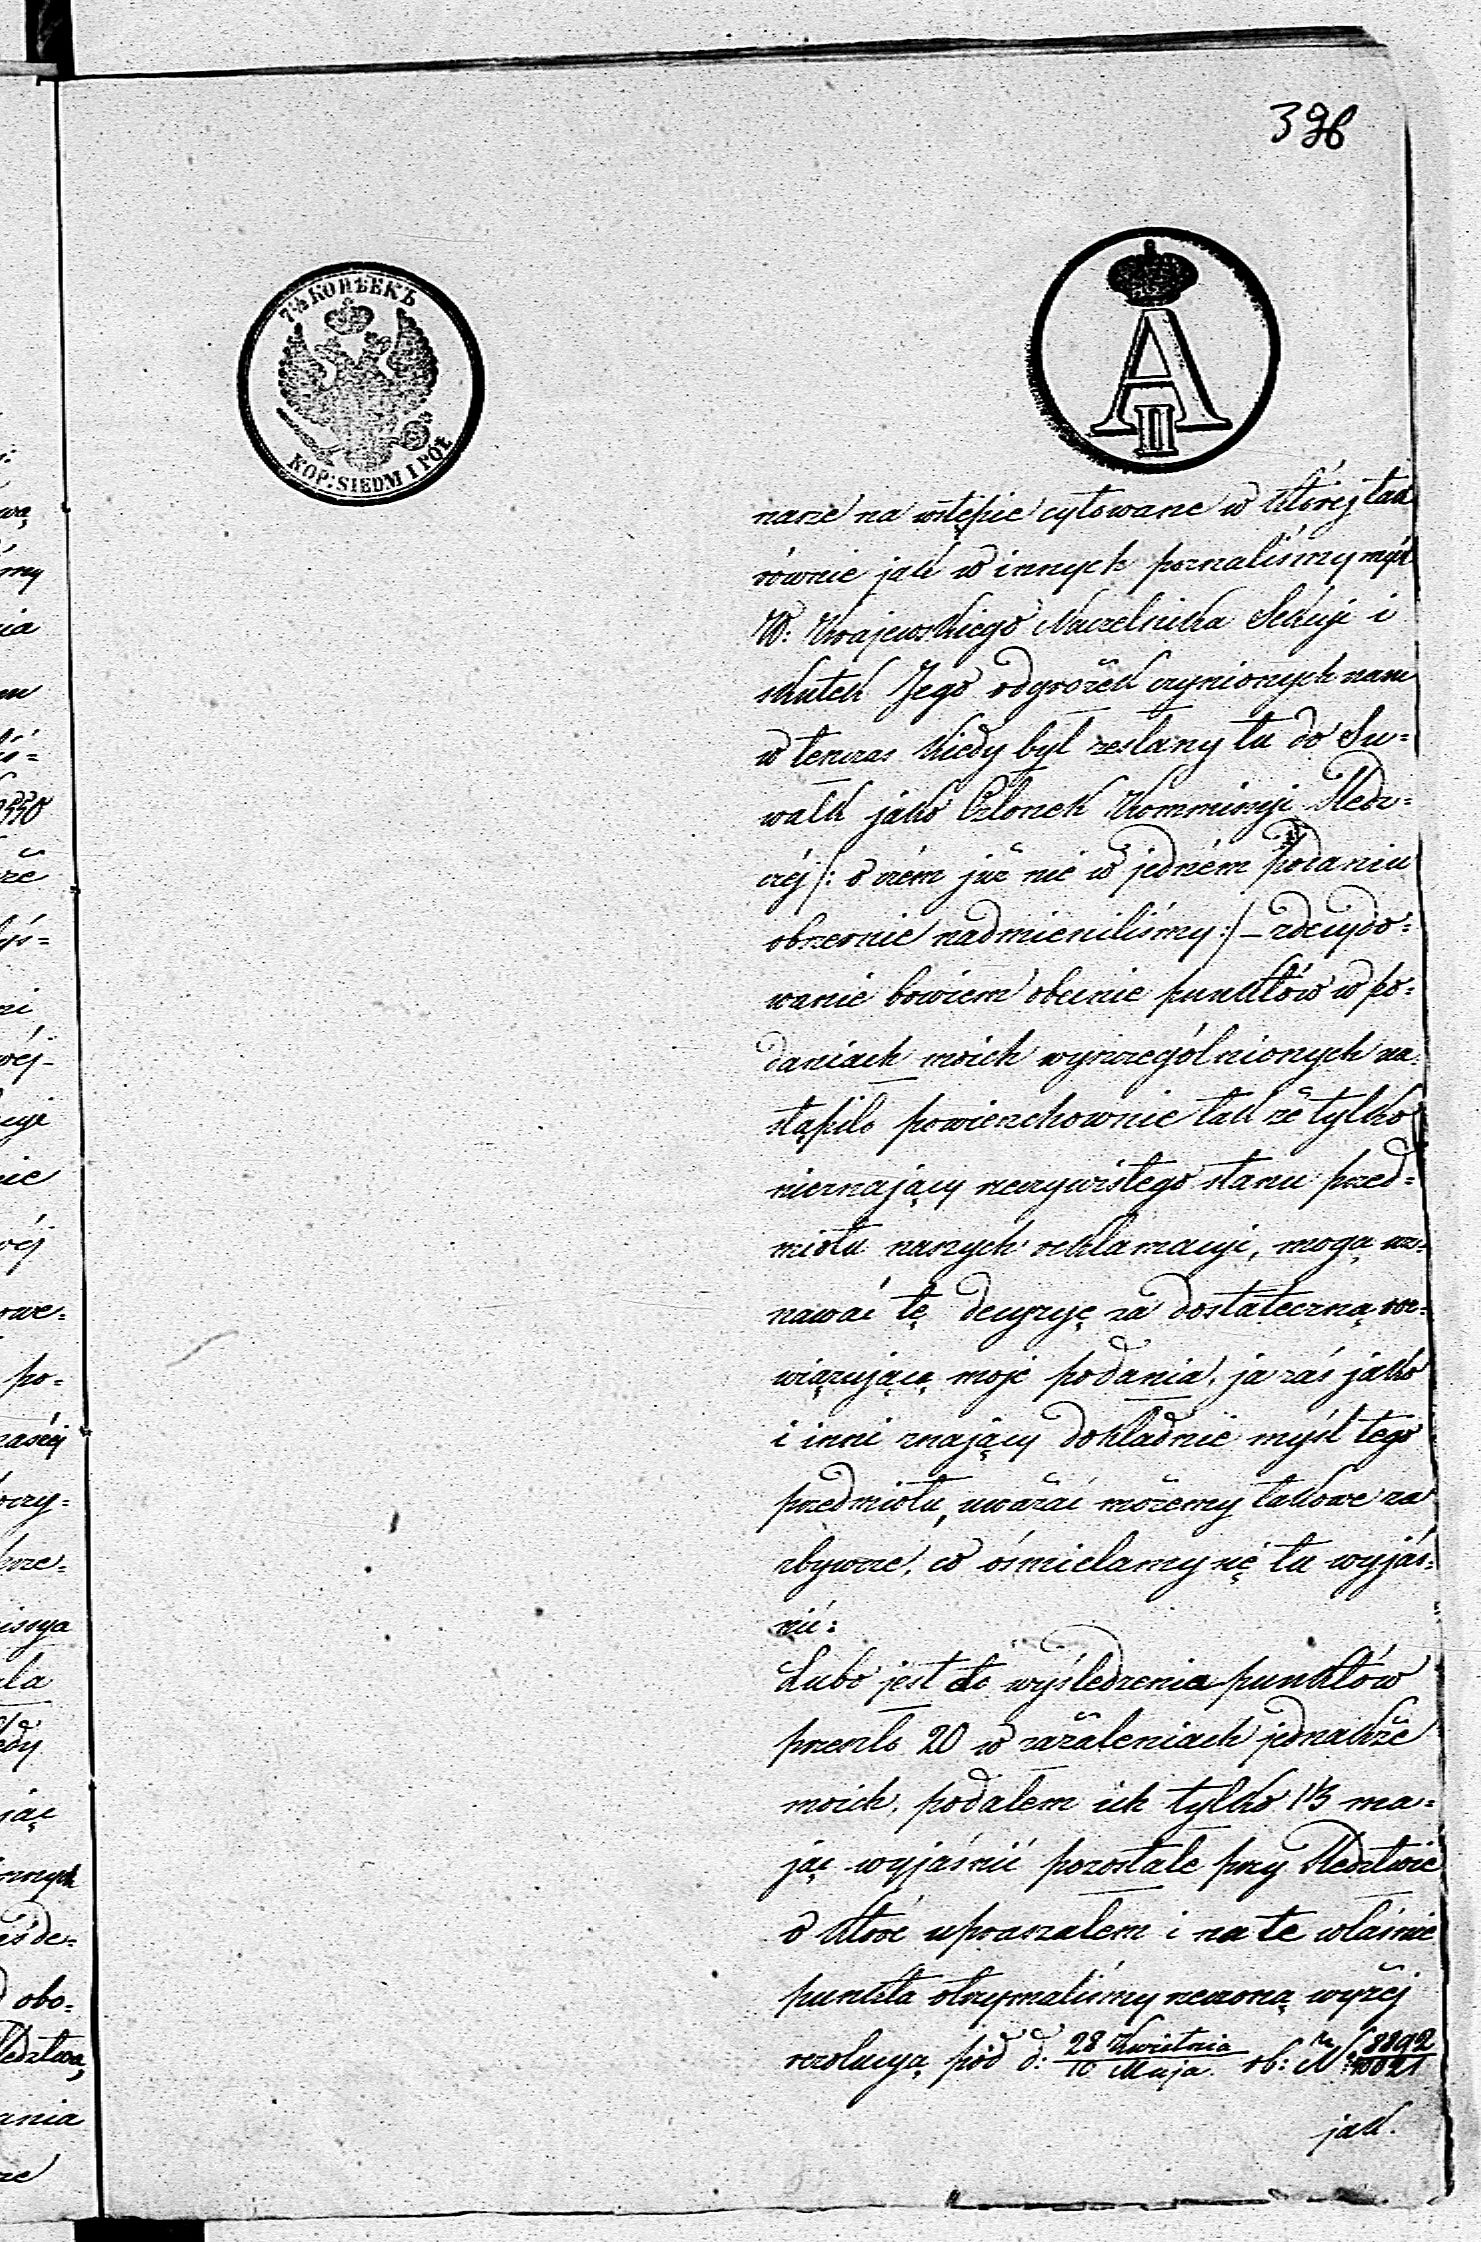 396
7½ КОПѢЕКЪ
KOP: SIEDM I PÓŁ
A
II
nasze na wstępie cytowane w któréj tak
równie jak w innych poznaliśmy myśl
W: Krajewskiego Naczelnika Sekcyi i
skutek Jego odgróżek czynionych nam
w tenczas kiedy był zesłany tu do Su=
wałk jako Członek Kommissyi Śledz=
czéj /: o czém już nie w jedném podaniu
obszernie nadmieniliśmy :/ – zdecydo=
wanie bowiem obecnie punktów w po=
daniach moich wyszczególnionych na=
stąpiło powierzchownie tak że tylko
nieznający rzeczywistego stanu przed=
miotu naszych reklamacyi, mogą uz=
nawać tę decyzyę za dostateczną roz=
wiązującą moje podania, ja zaś jako
i inni znający dokładnie myśl tego
przedmiotu, uważać możemy takowe za
zbywcze, co ośmielamy się tu wyjaś=
nić:
Lubo jest do wyśledzenia punktów
przeszło 20 w zażaleniach jednakże
moich, podałem ich tylko 13 ma=
jąc wyjaśnić pozostałe przy Śledztwie
o które upraszałem i na te właśnie
punkta otrzymaliśmy rzeczoną wyżéj
rezolucyą pod d: 28 Kwietnia / 10 Maja rb: N 8892 / 10021
jak.